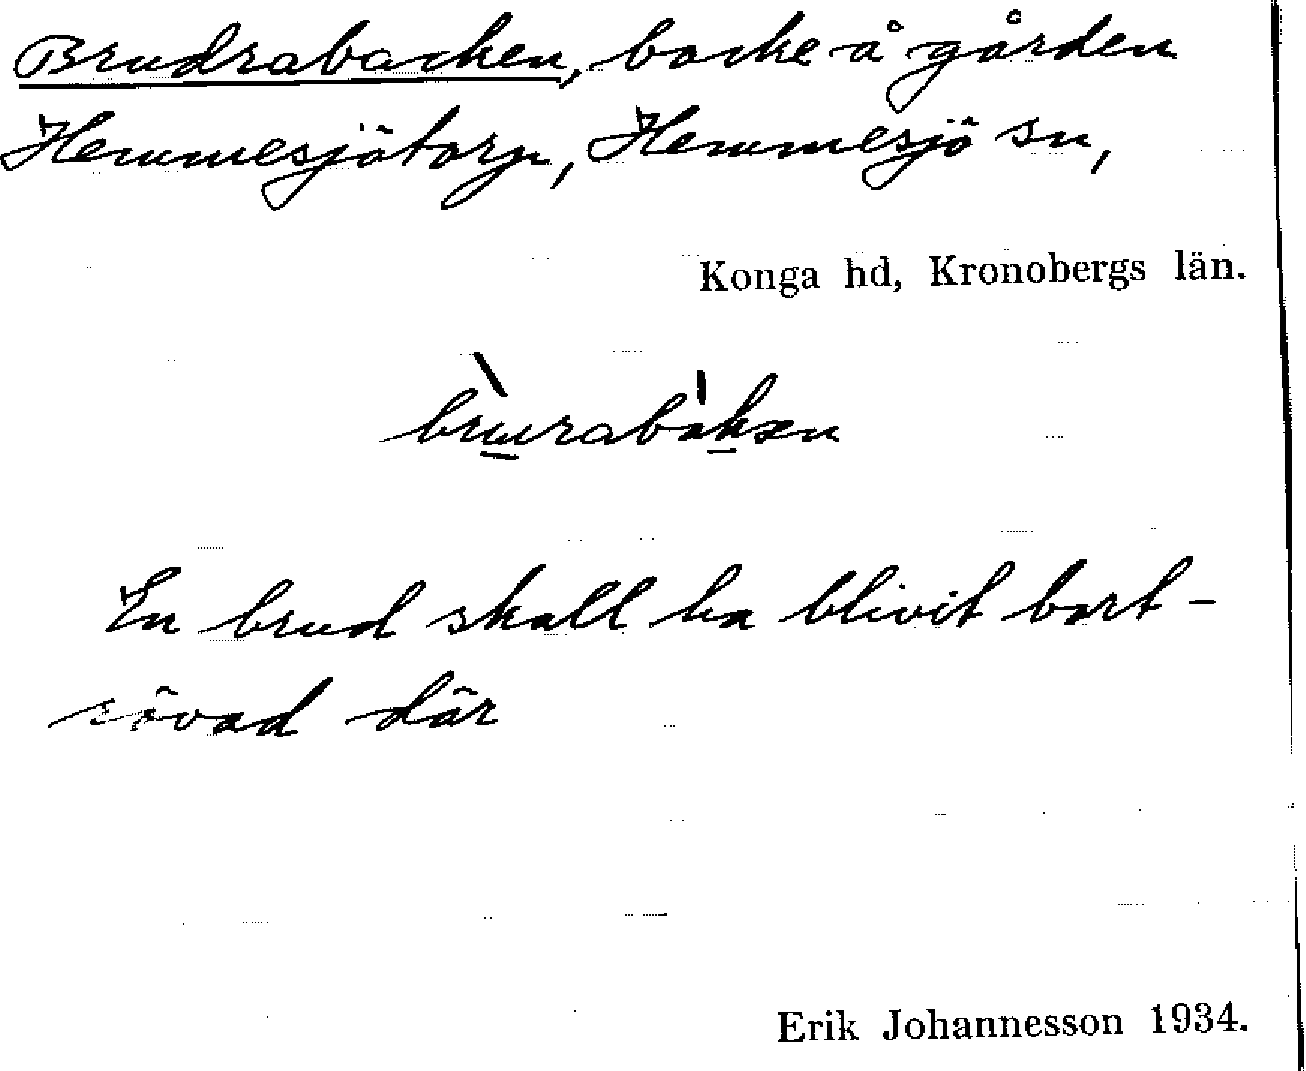 Brudrabacken, backe å gården
Hemmesjötorp, Hemmesjö sn,
Konga hd, Kronobergs län.
En brud skall ha blivit bort-
rövad där
Erik Johannesson 1934.